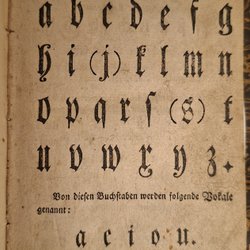 a b c d e f g
h i (j) k l m n
o p q r ſ (s) t
u v w x y z.
Von diesen Buchſtaben werden folgende Vokale
genannt:
a e i o u.